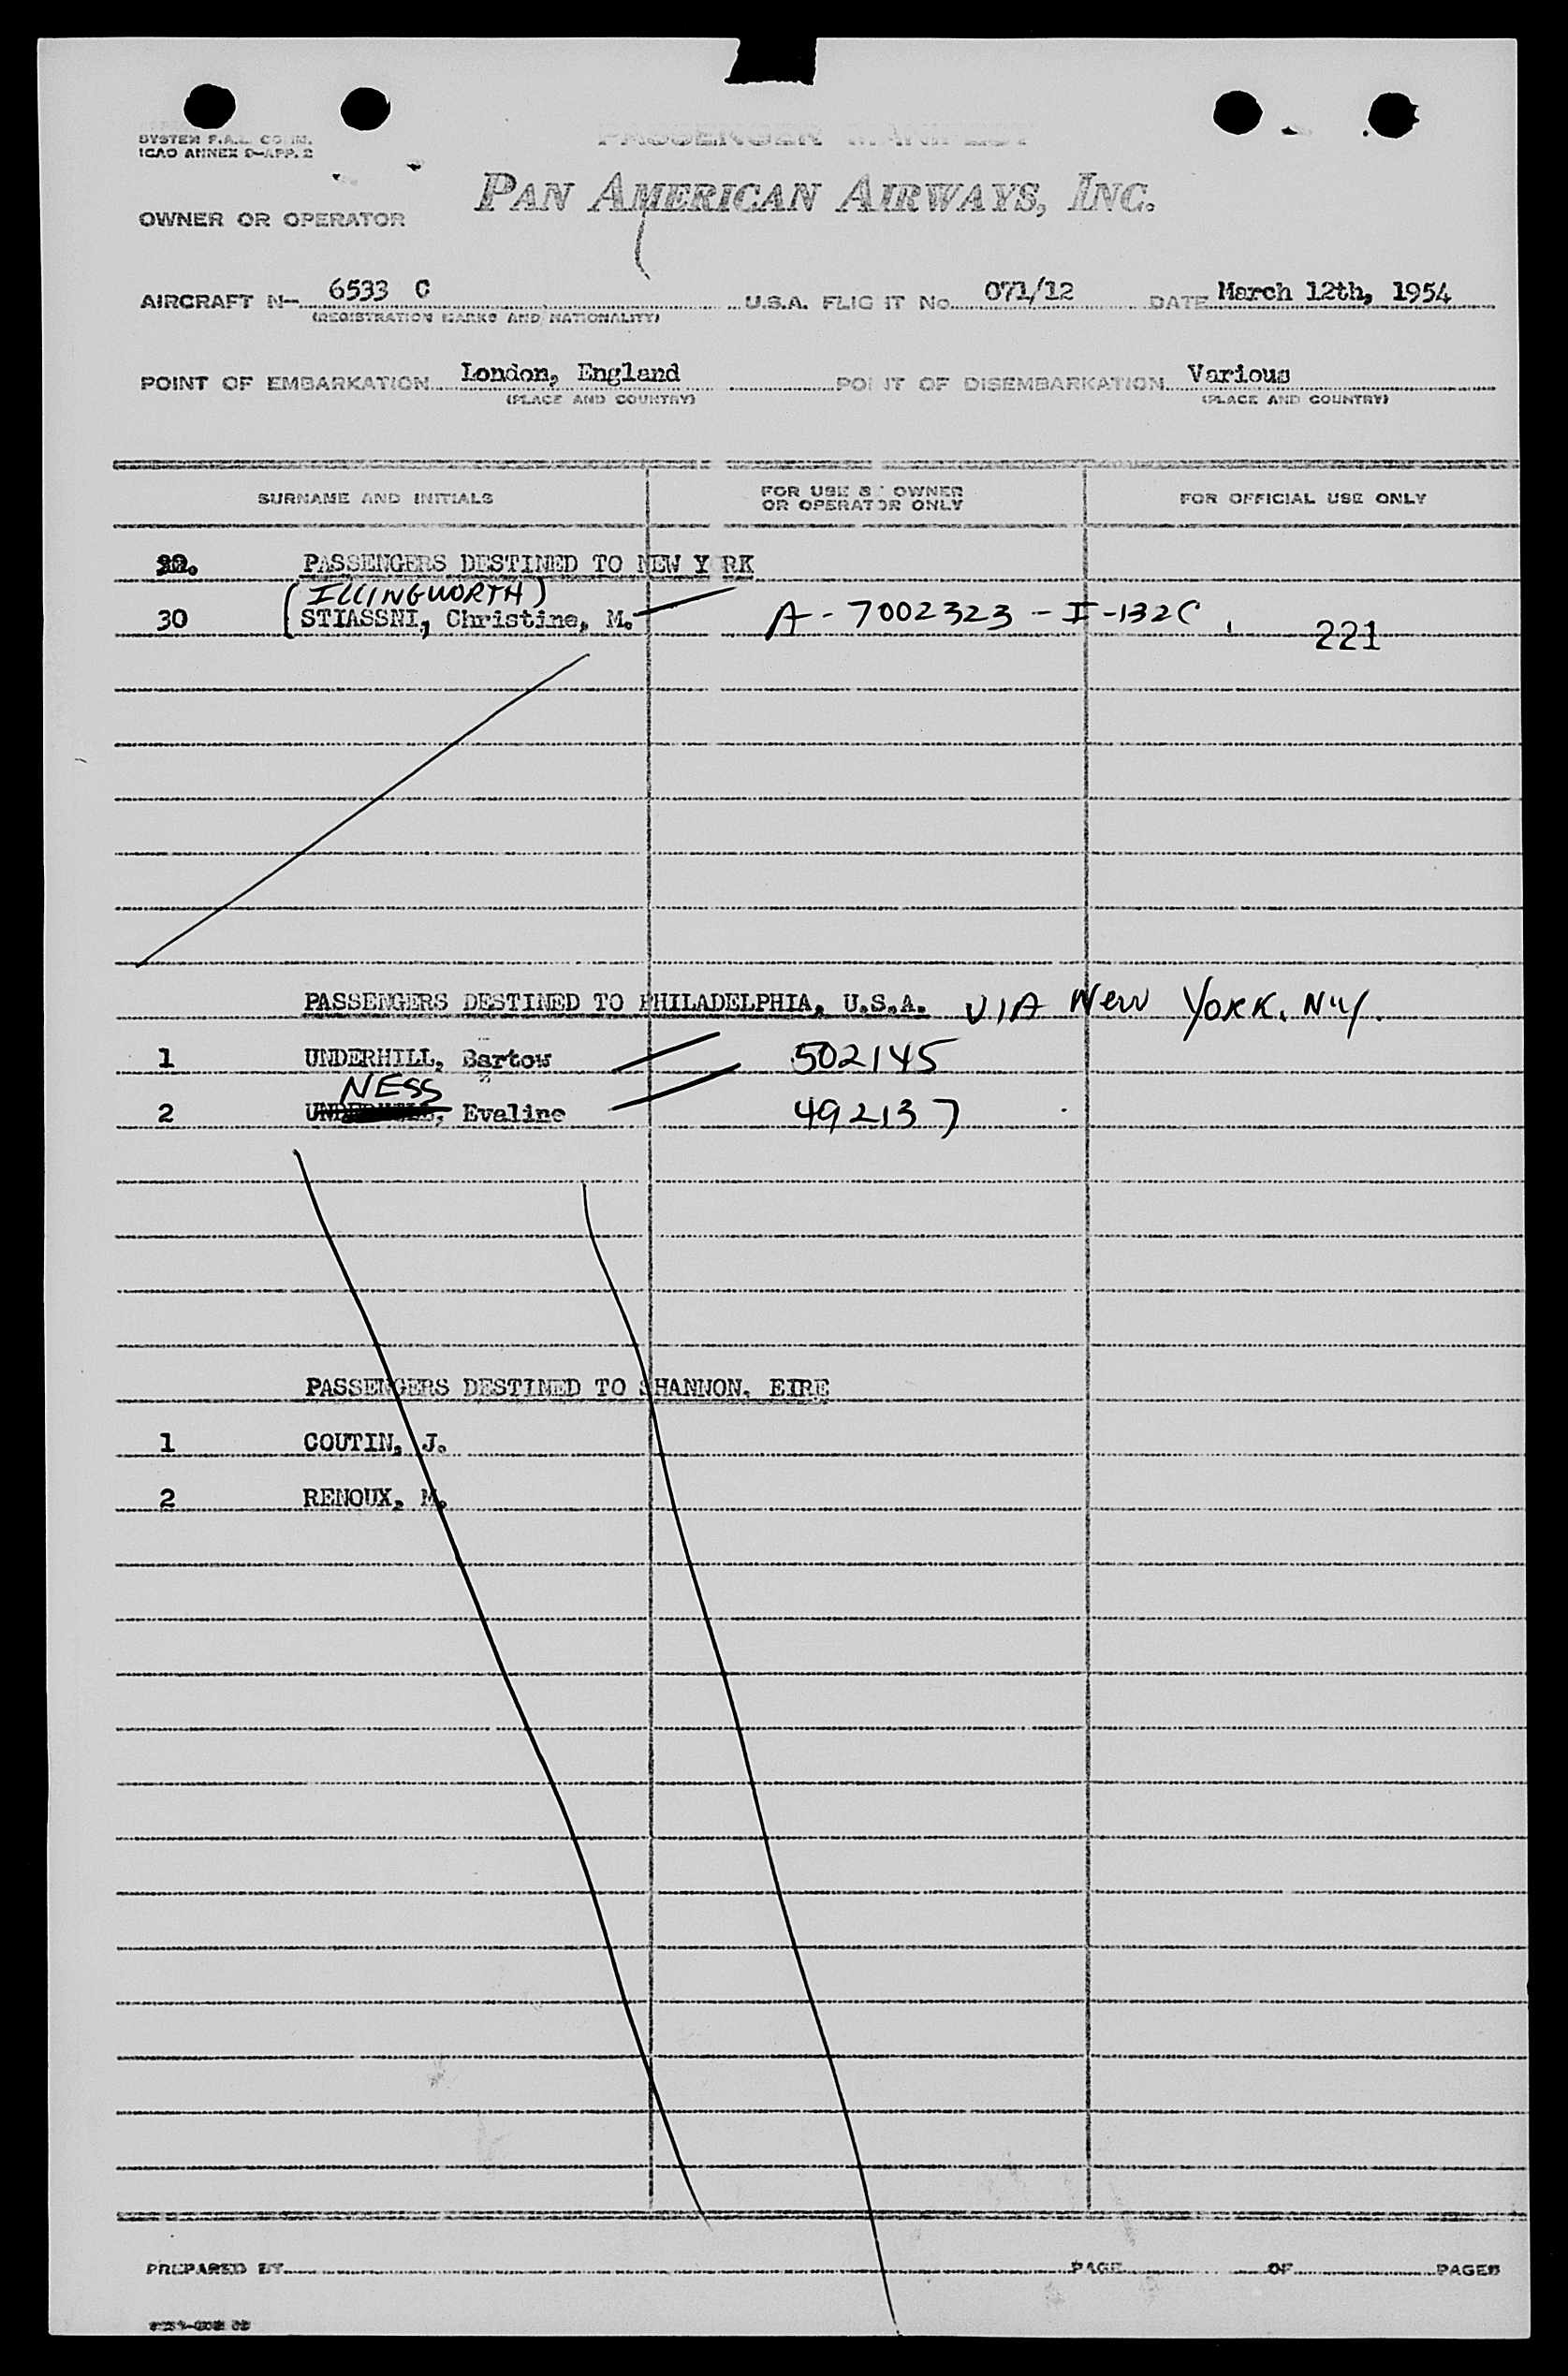 SYSTEM F.A.L. COMM.
ICAO ANNEX 9-APP. 2
PASSENGER MANIFEST
PAN AMERICAN AIRWAYS, INC.
OWNER OR OPERATOR
AIRCRAFT N- 6533 C U.S.A. FLIGHT No. 071/12 DATE March 12th, 1954
(REGISTRATION MARKS AND NATIONALITY)
POINT OF EMBARKATION London, England POINT OF DISEMBARKATION Various
(PLACE AND COUNTRY) (PLACE AND COUNTRY)
SURNAME AND INITIALS FOR USE BY OWNER OR OPERATOR ONLY FOR OFFICIAL USE ONLY
PASSENGERS DESTINED TO NEW YORK
(ILLINGWORTH)
30 (STIASSNI, Christine, M. A-7002323-I-132C 221
PASSENGERS DESTINED TO PHILADELPHIA, U.S.A. VIA New York, NY.
1 UNDERHILL, Bartow 502145
NESS
2 UNDERHILL, Evaline 492137
PASSENGERS DESTINED TO SHANNON, EIRE
1 COUTIN, J.
2 RENOUX, M.
PREPARED BY PAGE OF PAGES